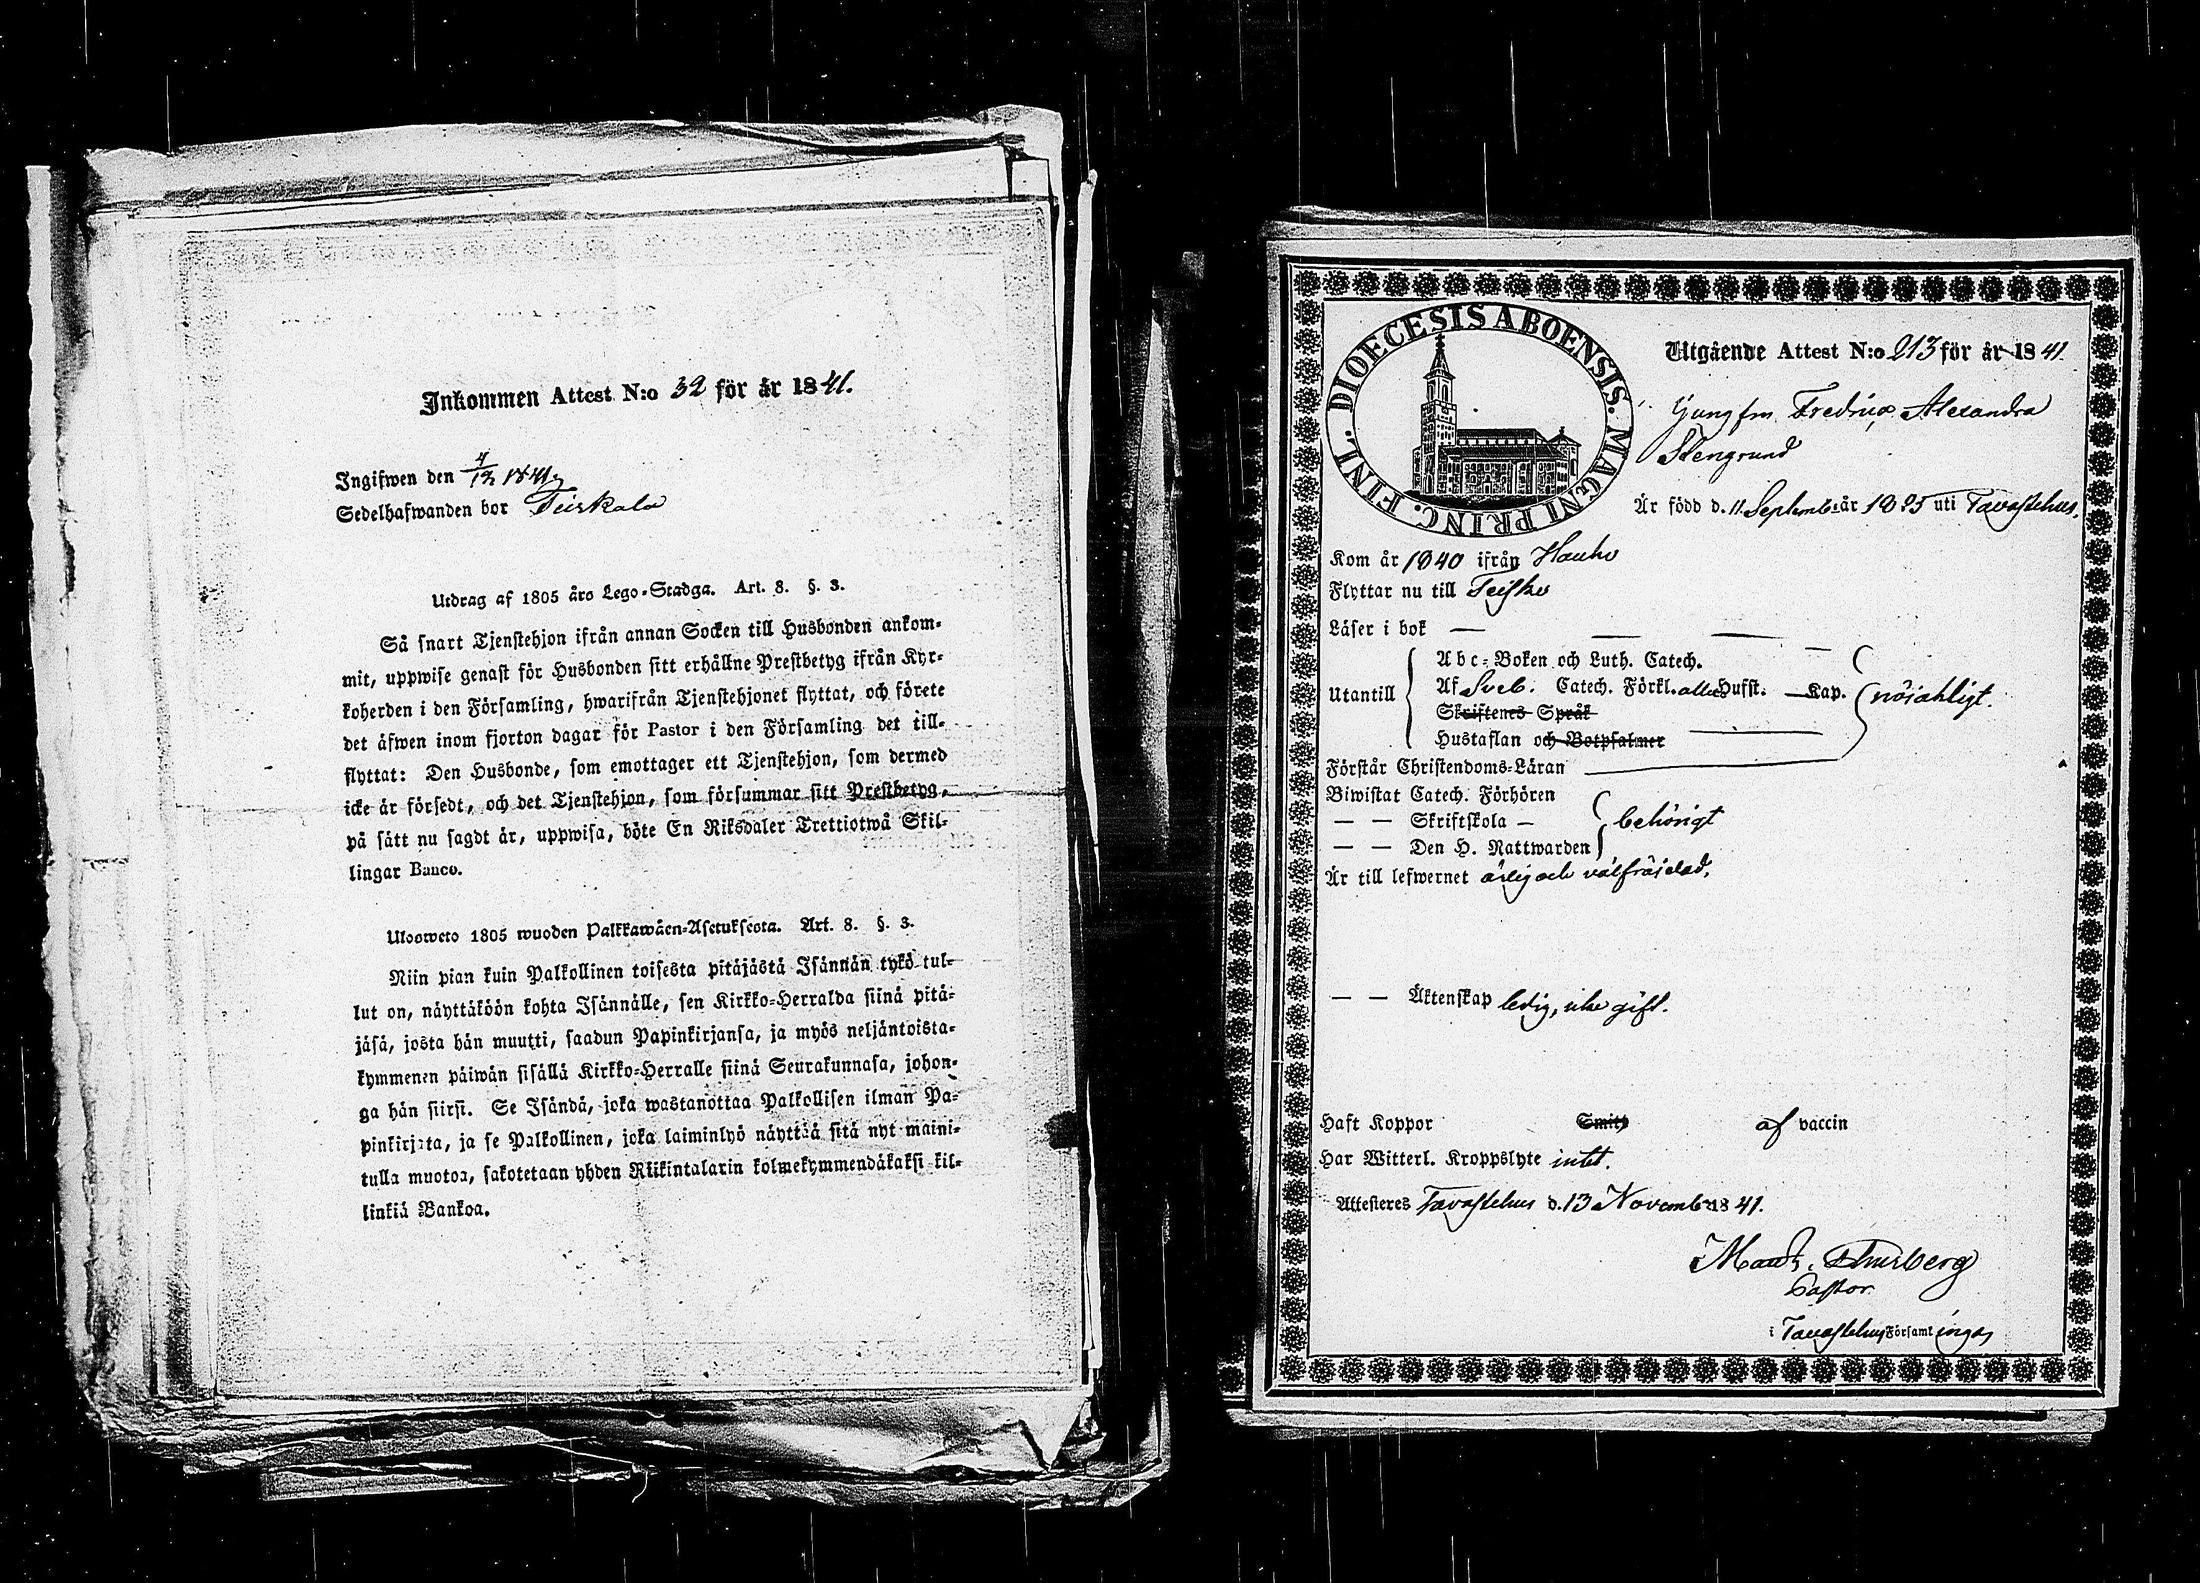 Inkommen Attest N:o 32 för år 1841.
Ingifwen den 4/12 1841
Sedelhafwanden bor Teiskola
Utdrag af 1805 års Lego-Stadga. Art. 8. §. 3.
Så snart Tjenstehjon ifrån annan Socken till Husbonden ankom-
mit, uppwise genast för Husbonden sitt erhållne Prestbetyg ifrån Kyr-
koherden i den Församling, hwarifrån Tjenstehjonet flyttat, och förete
det äfwen inom fjorton dagar för Pastor i den Församling det till-
flyttat: Den Husbonde, som emottager ett Tjenstehjon, som dermed
icke är försedt, och det Tjenstehjon, som försummar sitt Prestbetyg,
på sätt nu sagdt är, uppwisa, böte En Riksdaler Trettiotwå Skil-
lingar Banco.
Ulosweto 1805 wuoden Palkkawäen-Asetuksesta. Art. 8. §. 3.
Niin pian kuin Palkollinen toisesta pitäjästä Isännän tykö tul-
lut on, näyttäköön kohta Isännälle, sen Kirkko-Herralda siinä pitä-
jäsä, josta hän muutti, saadun Papinkirjansa, ja myös neljäntoista-
kymmenen päiwän sisällä Kirkko-Herralle siinä Seurakunnasa, johon-
ga hän siirsi. Se Isändä, joka wastanottaa Palkollisen ilman Pa-
pinkirjata, ja se Palkollinen, joka laiminlyö näyttää sitä nyt maini-
tulla muotoa, sakotetaan yhden Riikintalarin kolmekymmendäkaksi kil-
linkiä Bankoa.
DIOECESIS ABOENSIS. MAGNI PRINC. FINL.
Utgående Attest N:o 213 för år 1841.
Jungfrn Fredrica Alexandra
Stengrund
Är född d. 11 Septemb. år 1825 uti Tavastehus.
Kom år 1840 ifrån Hauho
Flyttar nu till Teisko
Läser i bok — — —
Utantill
Abc-Boken och Luth. Catech. —
Af Sveb. Catech. Förkl. alla Hufst. — Kap. nöjaktigt.
Skriftenes Språk
Hustaflan och Botpsalmer
Förstår Christendoms-Läran
Biwistat Catech. Förhören
— — Skriftskola — behörigt
— — Den H. Nattwarden
Är till lefwernet ärlig och välfräjdad.
— — Äktenskap ledig, icke gift.
Haft Koppor Smitt af vaccin
Har Witterl. Kroppslyte intet.
Attesteres Tavastehus d. 13 Novemb. 1841.
Pastor
i Tavastehus Församlingar